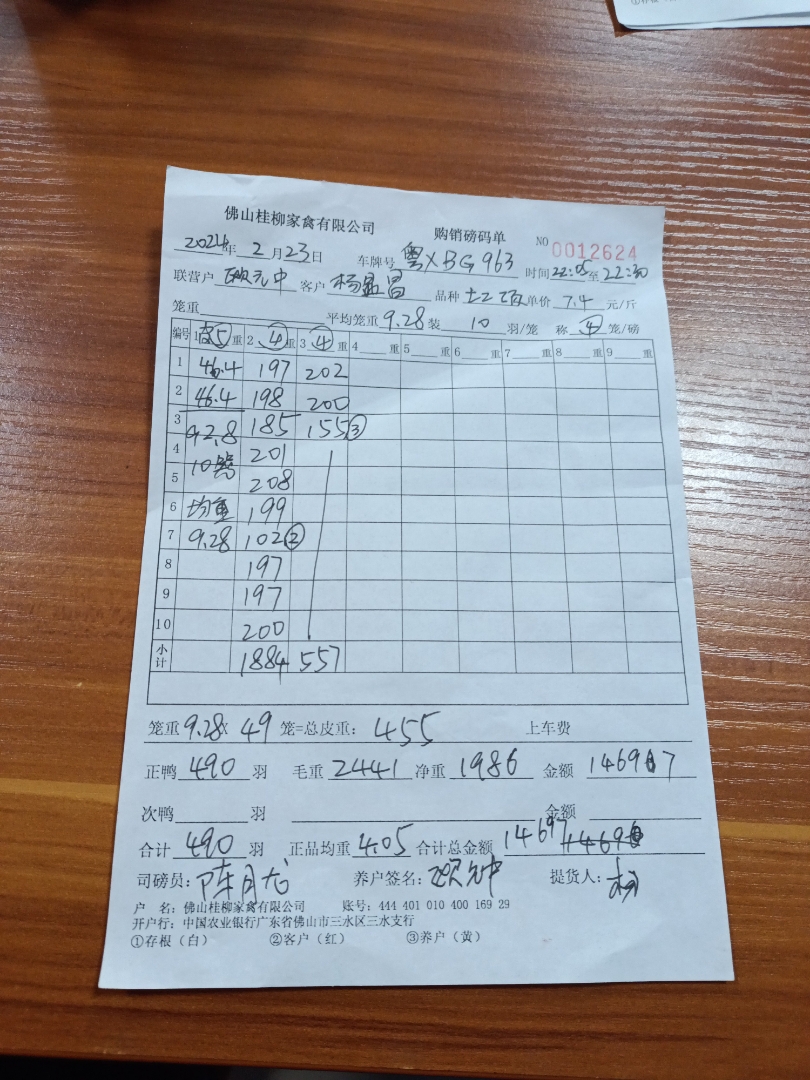 佛山桂柳家禽有限公司 购销磅码单 NO 0012624
2024年 2月23日 车牌号 粤XBG963 时间22:05至22:30
联营户 元中 客户 杨孟昌 品种 单价 7.4 元/斤
笼重 平均笼重9.28装 10 羽/笼 称 4 笼/磅
编号 1 皮5 重 2 4 重 3 4 重 4 重 5 重 6 重 7 重 8 重 9 重
1 46.4 197 202
2 46.4 198 200
3 92.8 185 155③
4 10笼 201
5 208
6 均重 199
7 9.28 102②
8 197
9 197
10 200
小计 1884 557
笼重9.28× 49 笼=总皮重: 455 上车费
正鸭 490 羽 毛重 2441 净重 1986 金额 14697
次鸭 羽 金额
合计 490 羽 正品均重 4.05 合计总金额 14697
司磅员: 陈月龙 养户签名: 元中 提货人: 杨
户 名: 佛山桂柳家禽有限公司 账号: 444 401 010 400 169 29
开户行: 中国农业银行广东省佛山市三水区三水支行
①存根（白） ②客户（红） ③养户（黄）